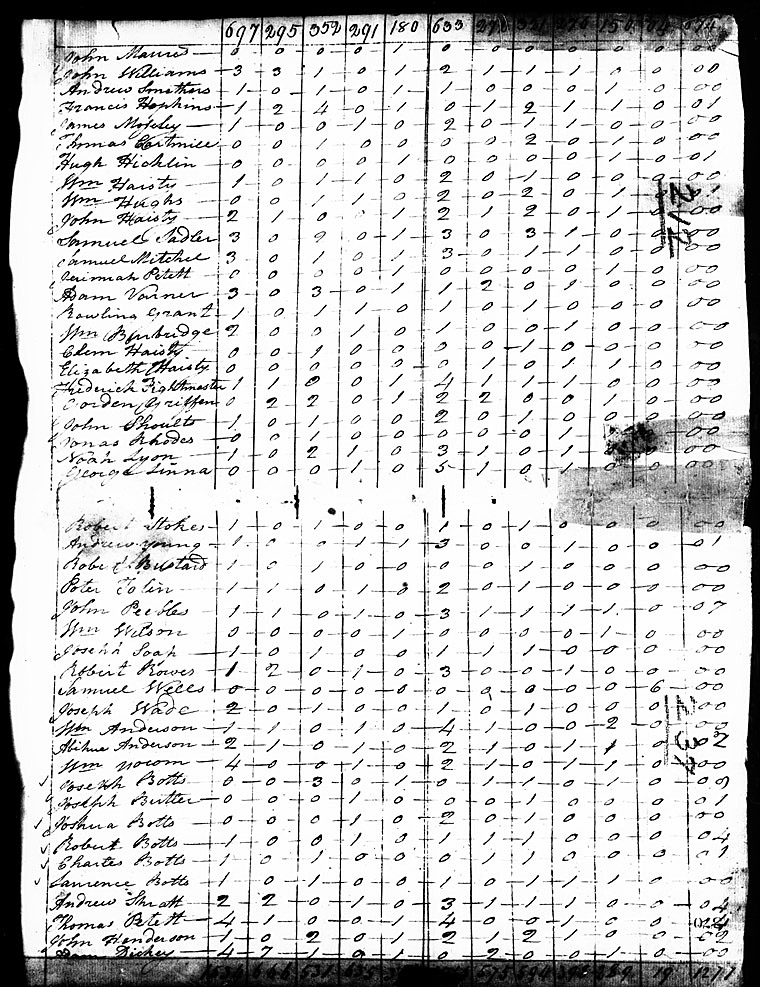 697 295 352 291 180 633 276 154 674
John
John Williams 3 3 1 0 1 2 1 1 1 0 0 00
Andrew Smothers 1 0 1 0 1 1 0 0 0 1 0 00
Francis Hopkins 1 2 4 0 1 0 1 2 1 1 0 01
James Mosley 1 0 0 1 0 2 0 1 1 0 0 00
Thomas 0 0 1 0 0 0 0 2 0 1 0 00
Hugh Hicklin 0 0 0 0 1 0 0 0 0 1 0 01
Wm Haisty 1 0 1 1 0 2 0 1 0 0 0 00
Wm Hughs 0 0 1 1 0 2 0 2 0 1
John Haisty 2 1 0 0 1 2 1 2 0 1 00
Samuel Sadler 3 0 2 0 1 3 0 3 1 00
Samuel Mitchel 3 0 1 0 1 3 0 1 1 0 00
Jerimiah Petett 0 0 0 0 1 0 0 0 0 0 0 00
Adam Varner 3 0 3 0 1 1 2 0 1 0 0 00
Rawling Grant 1 0 1 1 0 1 0 1 0 0 0 00
Wm Burbridge 2 0 0 1 0 1 0 0 1 0 0 00
Clem Haisty 0 0 1 0 0 0 0 1 0 0 0 00
Elizabeth Haisty 0 0 0 0 0 0 1 0 1 1 0 00
Frederick Fightmaster 1 1 0 0 1 4 1 1 1 0 0 00
Gorden Griffen 0 2 2 0 1 2 2 0 0 1 0 00
John Shoults 1 0 1 0 0 2 0 1 0 0 0 00
Jonas Rhodes 0 0 1 0 0 0 0 0 1 00
Noah Lyon 1 0 2 1 0 3 1 0 1 00
George Linna 0 0 0 1 0 5 1 0 1 0 0 00
212
Robert Stokes 1 0 1 0 0 1 0 1 0 0 0 00
Andrew Young 1 0 0 1 1 3 0 0 1 0 0 01
Bustard 1 0 1 0 0 1 0 0 0 0 0 00
Peter Tolin 1 1 0 1 0 2 0 1 0 0 0 00
John Peebles 1 1 0 1 0 3 1 1 1 1 0 07
Wm Wilson 0 0 0 0 1 0 0 0 0 1 0 00
Joseph Soap 1 0 1 0 0 1 0 1 0 0 0 00
Robert Rower 1 2 0 1 0 3 0 0 1 0 0 00
Samuel Wells 0 0 0 0 0 0 0 0 0 0 6 00
Joseph Wade 2 0 1 0 0 1 0 1 0 0 0 00
Wm Anderson 1 1 0 1 0 4 1 0 0 2 0
Abihue Anderson 2 1 0 1 0 2 1 0 1 1 0 02
Wm Yocom 4 0 0 1 0 2 1 0 1 0 0 00
Joseph Botts 0 0 3 0 1 0 1 1 1 1 0 09
Joseph Butler 0 0 0 1 0 0 0 1 0 0 0 01
Joshua Botts 0 0 0 1 0 2 0 1 0 0 0 00
Robert Botts 1 0 0 1 0 1 1 1 0 0 0 04
Charles Botts 1 0 1 0 0 0 1 1 0 0 0 01
Laurence Botts 1 0 1 0 0 1 0 1 1 1 0 00
Andrew 2 2 0 1 0 3 1 1 1 0 0 04
Thomas Petett 4 1 0 0 1 4 0 0 1 0 0
John Henderson 1 0 2 0 1 2 1 2 1 0 0 02
Dickey 4 7 1 0 1 0 2 0 0 1 0 00
237
19 1277